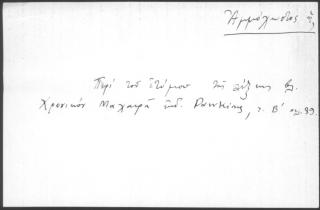 Ἀμμόχωστος ἡ,
Περὶ τοῦ ἐτύμου τῆς λέξεως βλ.
Χρονικόν Μαχαιρᾶ ἔκδ. Dawkins, τ. Β' σελ. 89.